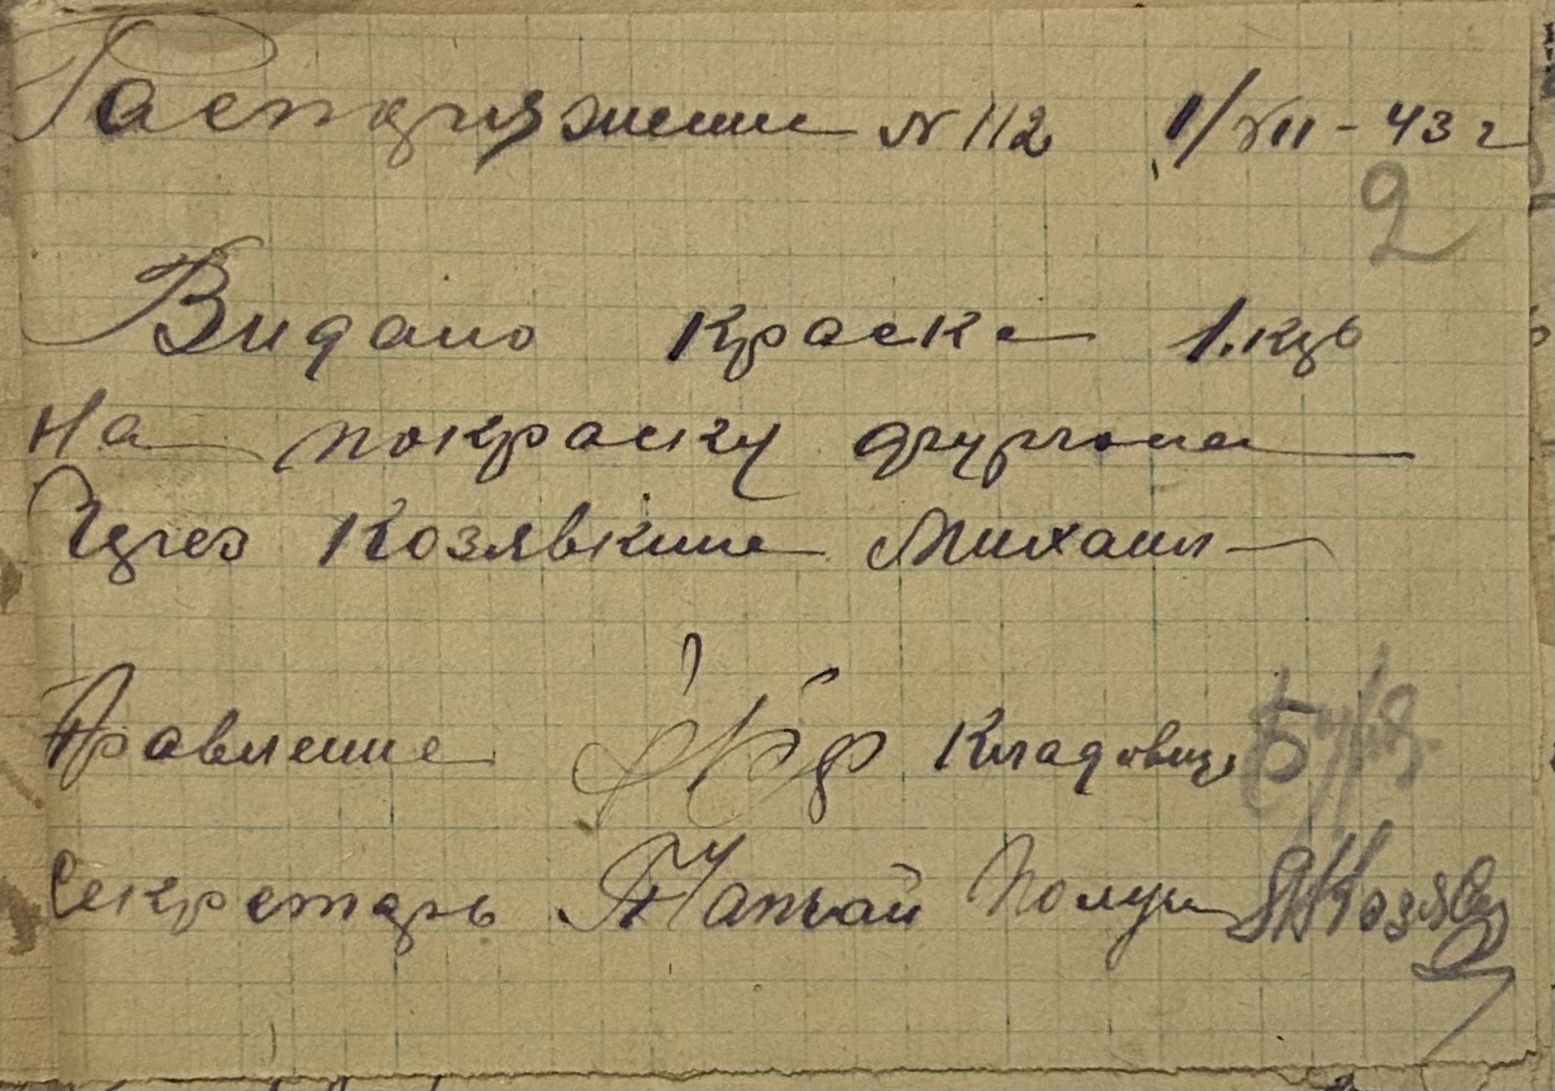 Распоряжение № 112 1/VII - 43 г
2
Видано краски 1.кгь
На покраску фургона
Через Козявкина Михаил
Правление Кладовщ
Секретарь Получил Козявк